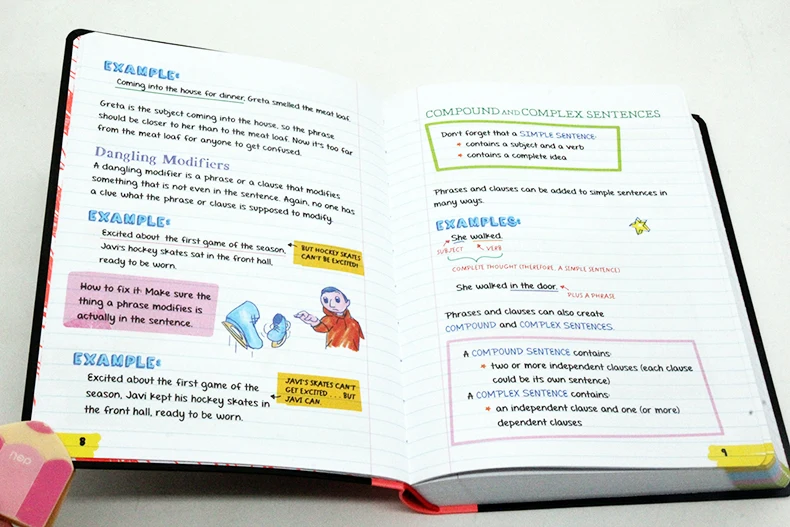 EXAMPLE:
Coming into the house for dinner, Greta smelled the meat loaf.
Greta is the subject coming into the house, so the phrase
should be closer to her than to the meat loaf. Now it's too far
from the meat loaf for anyone to get confused.
Dangling Modifiers
A dangling modifier is a phrase or a clause that modifies
something that is not even in the sentence. Again, no one has
a clue what the phrase or clause is supposed to modify.
EXAMPLE:
Excited about the first game of the season,
Javi's hockey skates sat in the front hall,
ready to be worn.
BUT HOCKEY SKATES
CAN'T BE EXCITED!
How to fix it: Make sure the
thing a phrase modifies is
actually in the sentence.
EXAMPLE:
Excited about the first game of the
season, Javi kept his hockey skates in
the front hall, ready to be worn.
JAVI'S SKATES CAN'T
GET EXCITED . . . BUT
JAVI CAN.
8
COMPOUND AND COMPLEX SENTENCES
Don't forget that a SIMPLE SENTENCE:
* contains a subject and a verb
* contains a complete idea
Phrases and clauses can be added to simple sentences in
many ways.
EXAMPLES:
She walked.
SUBJECT VERB
COMPLETE THOUGHT (THEREFORE, A SIMPLE SENTENCE)
She walked in the door.
PLUS A PHRASE
Phrases and clauses can also create
COMPOUND and COMPLEX SENTENCES.
A COMPOUND SENTENCE contains:
* two or more independent clauses (each clause
could be its own sentence)
A COMPLEX SENTENCE contains:
* an independent clause and one (or more)
dependent clauses
9